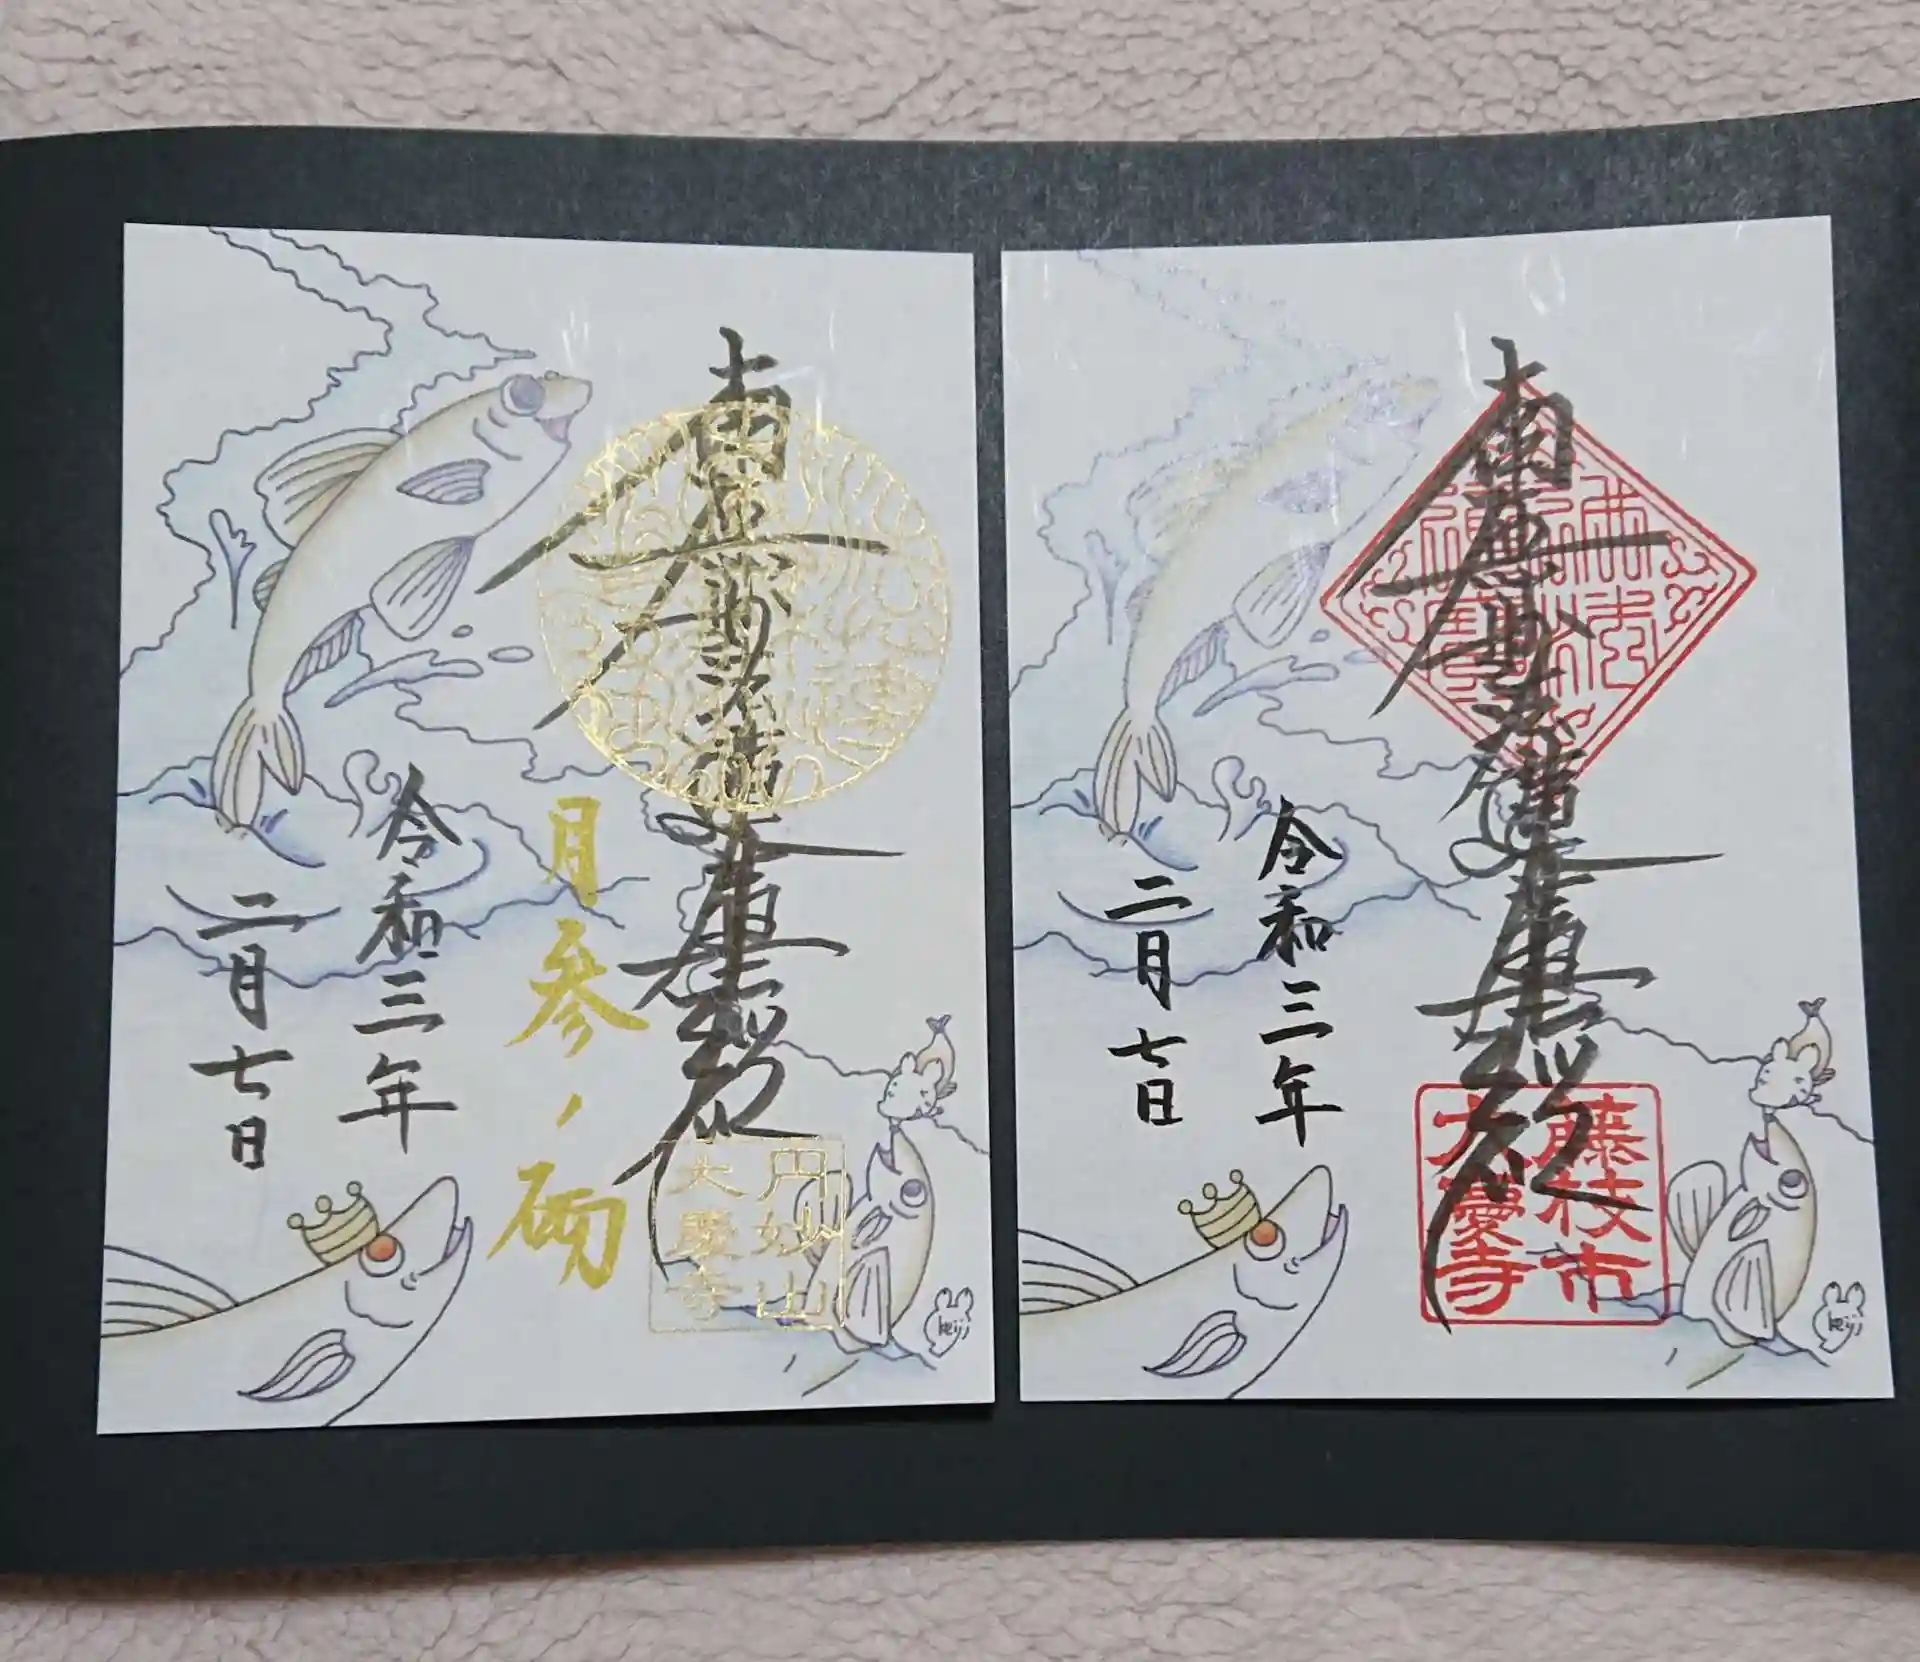 南無妙法蓮華経
円妙山
大慶寺
月参ノ砌
令和三年
二月七日
keiji
南無妙法蓮華経
藤枝市
大慶寺
令和三年
二月七日
keiji